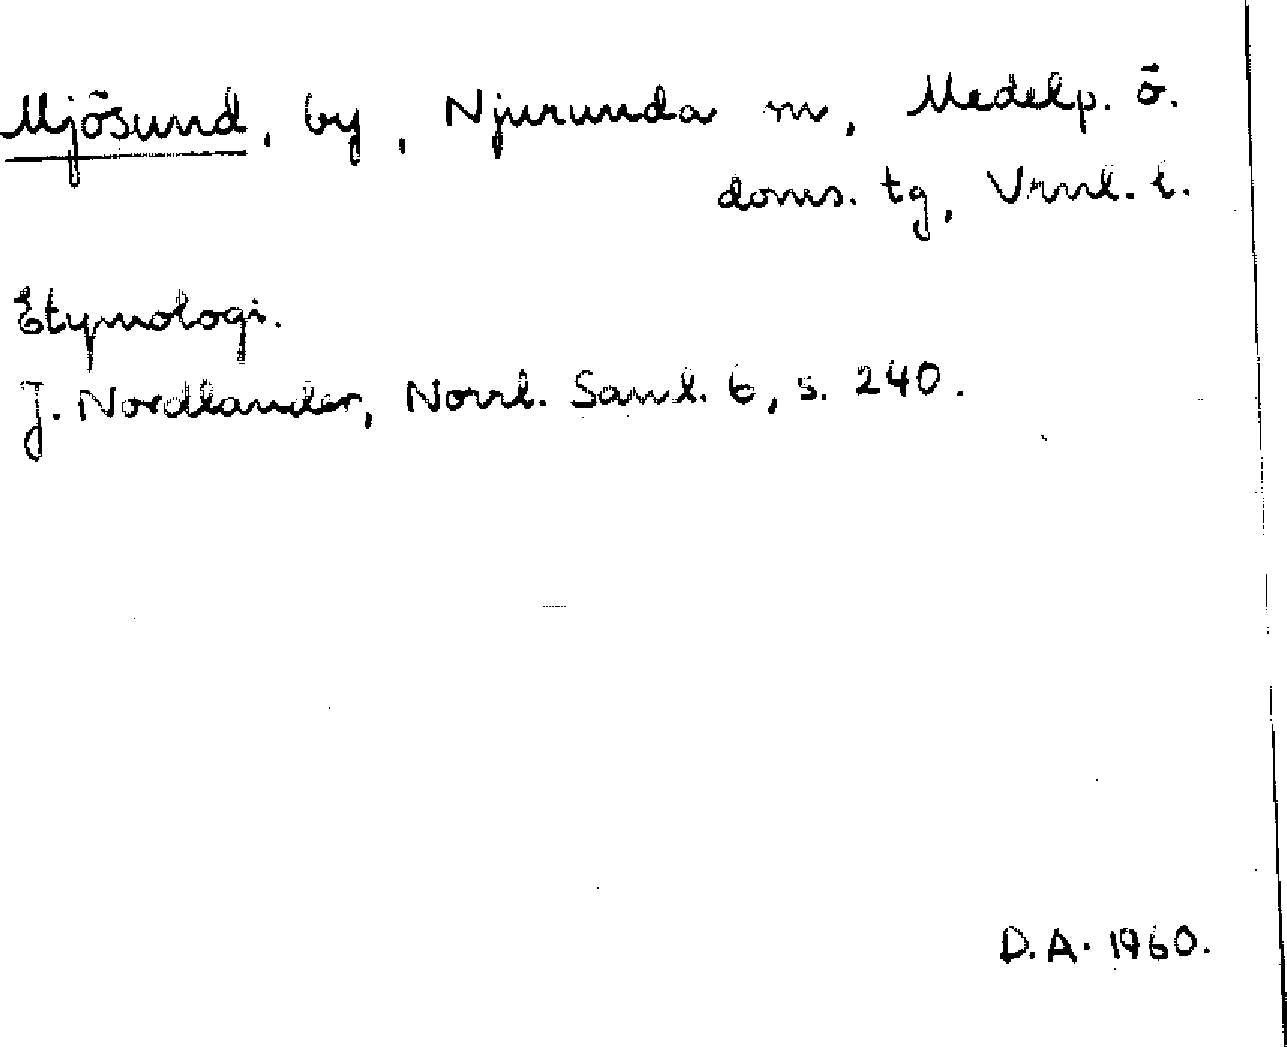 Mjösund, by, Njurunda sn, Medelp. ö.
doms. tg, Vrnl. l.
Etymologi.
J. Nordlander, Norrl. Saml. 6, s. 240.
D.A. 1960.